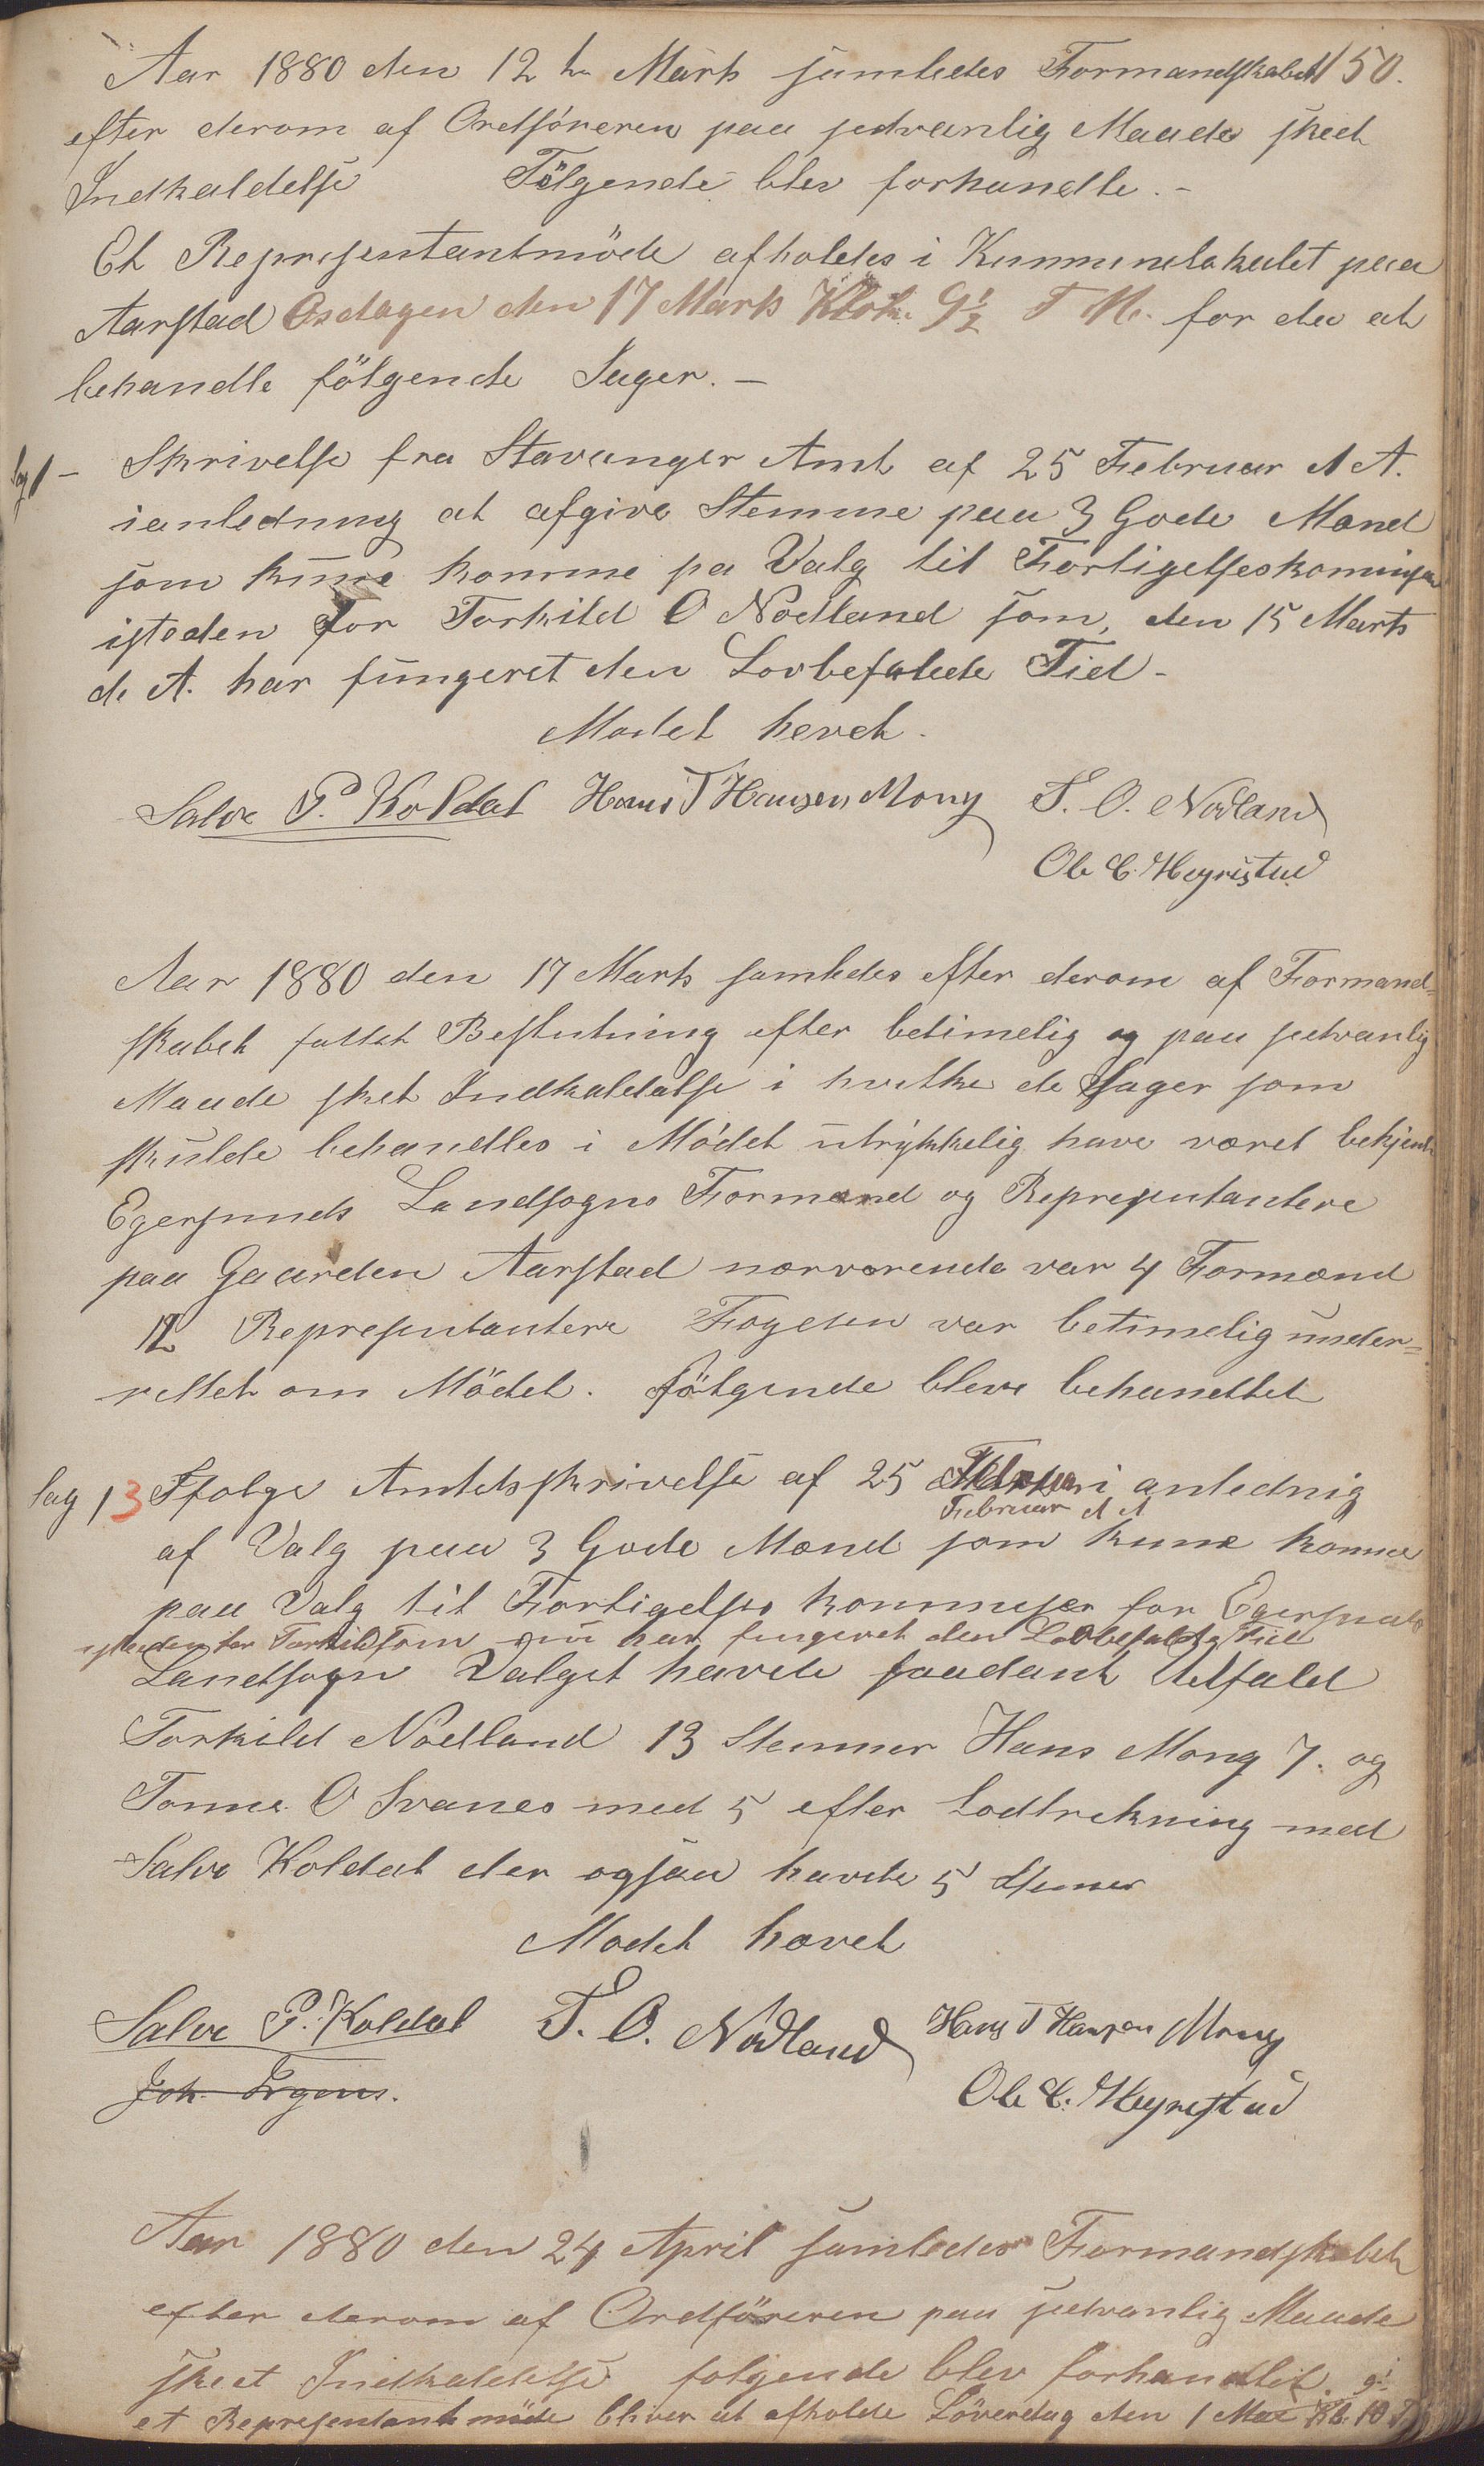 150.
Aar 1880 den 12te Marts samledes Formandskabet
efter derom af Ordføreren paa sedvanlig Maade skeet
Indkaldelse Følgende blev forhandle. -
Et Representantmöde afholdes i Kummunelokalet paa
Aarstad Onsdagen den 17 Marts Klok. 9½ F M. for der at
behandle fölgende Sager. -
Sag 1 - Skrivelse fra Stavanger Amt af 25 Februar d A.
ianledning at afgive Stemme paa 3 Gode Mænd
som kunne komme pa Valg til Forligelseskomisjon
isteden for Torkild O Nodland som, den 15 Marts
d. A. har fungeret den Lovbefalede Tid -
Modet hevet.
Salve P. Koldal Hans T Hansen Mong T. O. Nødland
Ole C. Hegrestad
Aar 1880 den 17 Marts samledes efter derom af Formand=
skabet fattet Beslutning efter betimelig og paa sedvanlig
Maade sket Indkaldelse i hvilke de Sager som
skulde behandles i Mödet utrykkelig have været bekjent
Egersunds Landsogns Formænd og Representantere
paa Gaarden Aarstad nærværende var 4 Formænd
12 Representantere Fogden var betimelig under=
rettet om Mödet. fölgende bleve behandlet
Sag 13 Ifølge Amtsskrivelse af 25 i anledning
Februar d A
af Valg paa 3 Gode Mænd som kune komme
paa Valg til Forligelses kommisjon for Egersunds
isteden for Torkild som nu har fungeret den Lovbefalede Tid
Landsogn Valget havde saadant Udfald
Torkild Nødland 13 Stemmer Hans Mong 7. og
Tonnes O Svanes med 5 efter Lodtrekning med
Salve Koldal der ogsaa havde 5 Stemmer
Modet hævet
Salve P. Koldal T. O. Nødland Hans T Hansen Mong
Ole C. Hegrestad
Aar 1880 den 24 April samledes Formandskabet
efter derom af Ordföreren paa sedvanlig Maade
skeet Indkaldelse følgende blev forhandlet.
et Representantmöde bliver at afholde Löverdag den 1 Mai Kl. 10